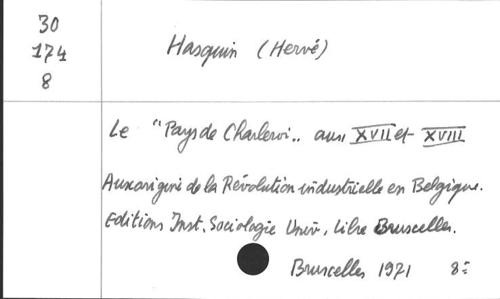 30
174
8
Hasquin (Hervé)
Le "Pays de Charleroi„ aux XVII et XVIII
Aux origine de la Révolution industrielle en Belgique.
Editions Inst. Sociologie Univ. Libre Bruxelles.
Bruxelles 1971 8º